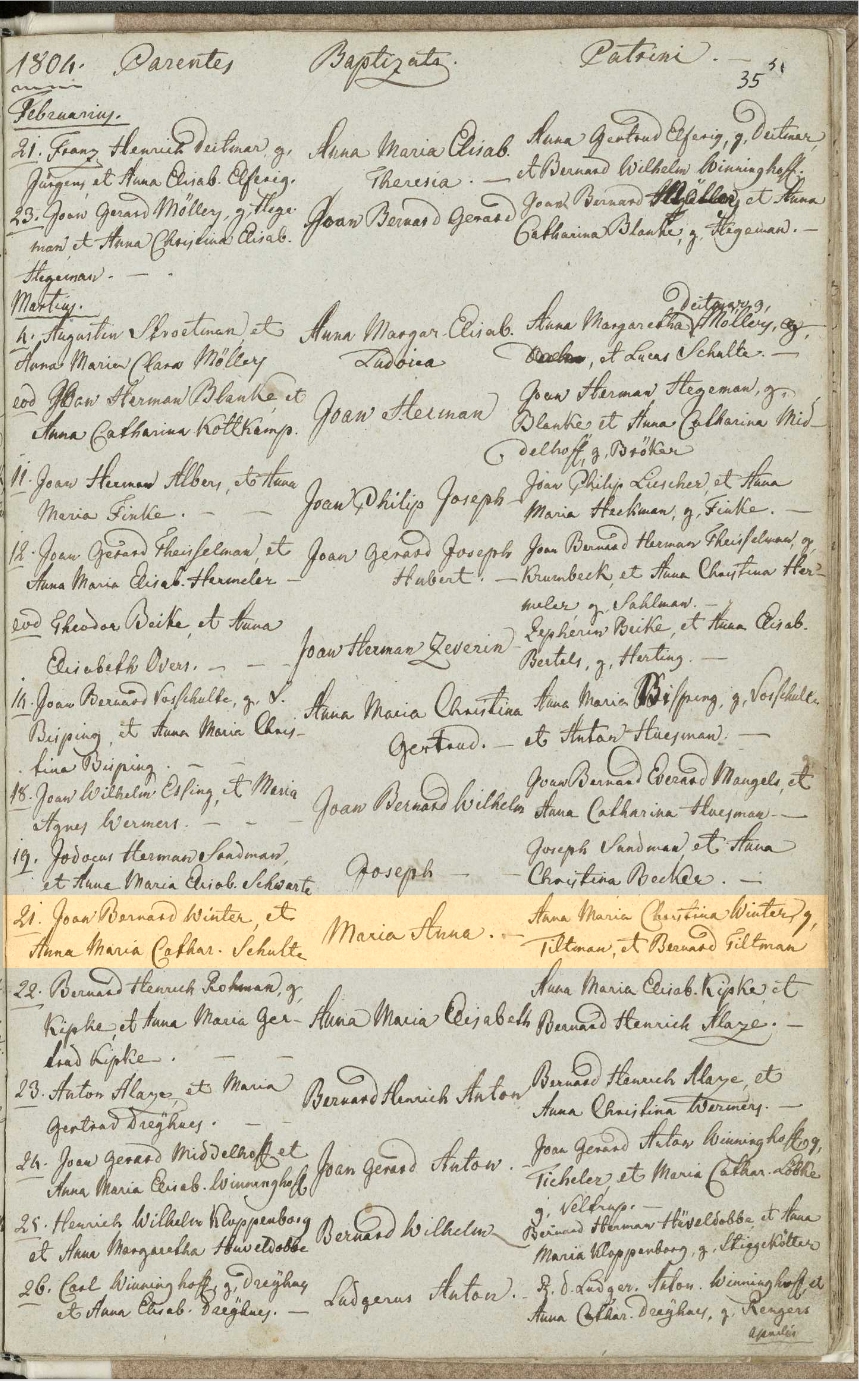 1804. Parentes Baptizati. Patrini. —
35
Februarius.
21. Franz Henrich Deitmar, g,
Jürgens, et Anna Elisab. Elferig.
Anna Maria Elisab.
Theresia. —
Anna Gertrud Elferig, g, Deitmar,
et Bernard Wilhelm Winninghoff.
23. Joan Gerard Möllers, g, Stege-
man, et Anna Christina Elisab.
Stegeman. — .
Joan Bernard Gerard
Joan Bernard Möllers, et Anna
Catharina Blanke, g, Stegeman. —
Martius.
4. Augustin Stroetman et
Anna Maria Clara Möllers
Anna Margar. Elisab.
Ludovica
Deitmar, g,
Anna Margaretha Möllers,
, et Lucas Schulte. —
eod Joan Herman Blanke, et
Anna Catharina Kottkamp.
Joan Herman
Joan Herman Stegeman, g,
Blanke et Anna Catharina Mid-
delhoff, g, Bröker
11. Joan Herman Albers, et Anna
Maria Finke. — —
Joan Philip Joseph
Joan Philip Liescher, et Anna
Maria Heckman, g, Finke. —
12. Joan Gerard Theisselman, et
Anna Maria Elisab. Hermeler —
Joan Gerard Joseph
Hubert. —
Joan Bernard Herman Theisselman, g,
Krumbeck, et Anna Christina Her-
meler g, Sahlman. —
eod Theodor Beike, et Anna
Elisabeth Overs. — —
Joan Herman Zeverin
Zepherin Beike, et Anna Elisab.
Bertels, g, Herting. —
14. Joan Bernard Vosschulte, g,
Bisping, et Anna Maria Chris-
tina Bisping. —
Anna Maria Christina
Gertrud. —
Anna Maria Bisping, g, Vosschulte
et Anton Huesman. —
18. Joan Wilhelm Essing, et Maria
Agnes Wermers. — —
Joan Bernard Wilhelm
Joan Bernard Everard Mangels, et
Anna Catharina Huesman —
19. Jodocus Herman Sandman,
et Anna Maria Elisab. Schwarte
Joseph — —
Joseph Sandman, et Anna
Christina Becker. —
21. Joan Bernard Winter, et
Anna Maria Cathar. Schulte
Maria Anna. —
Anna Maria Christina Winter, g,
Tiltman, et Bernard Tiltman
22. Bernard Henrich Rohman, g,
Kipke, et Anna Maria Ger-
trud Kipke. — —
Anna Maria Elisabeth
Anna Maria Elisab. Kipke, et
Bernard Henrich Alaze. —
23. Anton Alaze, et Maria
Gertrud Dreÿhues. —
Bernard Henrich Anton
Bernard Henrich Alaze, et
Anna Christina Wermers. —
24. Joan Gerard Middelhoff, et
Anna Maria Elisab. Winninghoff
Joan Gerard Anton. —
Joan Gerard Anton Winninghoff, g,
Ticheler, et Maria Cathar. Löbke
g, Veltrup. —
25. Henrich Wilhelm Kloppenborg
et Anna Margaretha Huveldobbe
Bernard Wilhelm
Bernard Herman Hüveldobbe, et Anna
Maria Kloppenborg, g, Stiggekötter
26. Carl Winninghoff, g, Dreÿhues
et Anna Elisab. Dreÿhues. —
Ludgerus Anton. —
R. d. Ludger. Anton. Winninghoff, et
Anna Cathar. Dreÿhues, g, Rengers
Aprilis